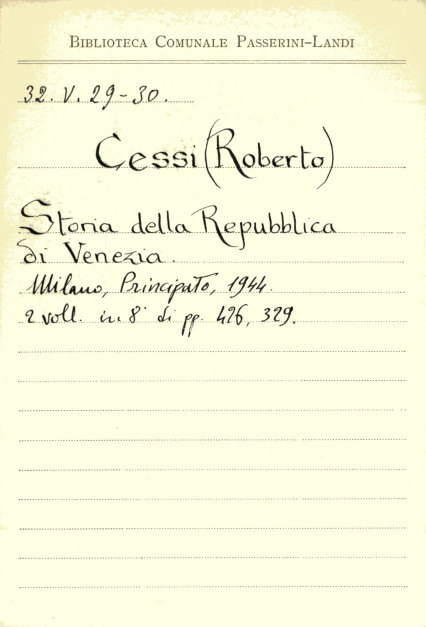 BIBLIOTECA COMUNALE PASSERINI-LANDI
32. V. 29-30.
Cessi (Roberto)
Storia della Repubblica
di Venezia.
Milano, Principato, 1944.
2 voll. in 8° di pp. 426, 329.